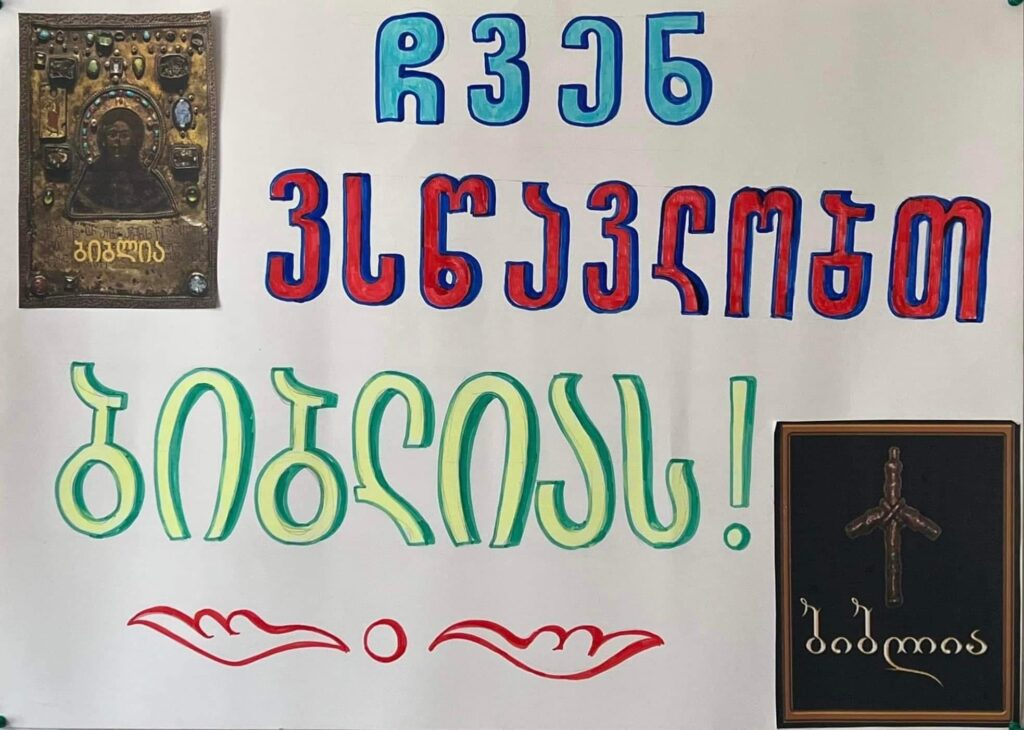 ჩვენ
ბიბლია
ვსწავლობთ
ბიბლიას!
ბიბლია